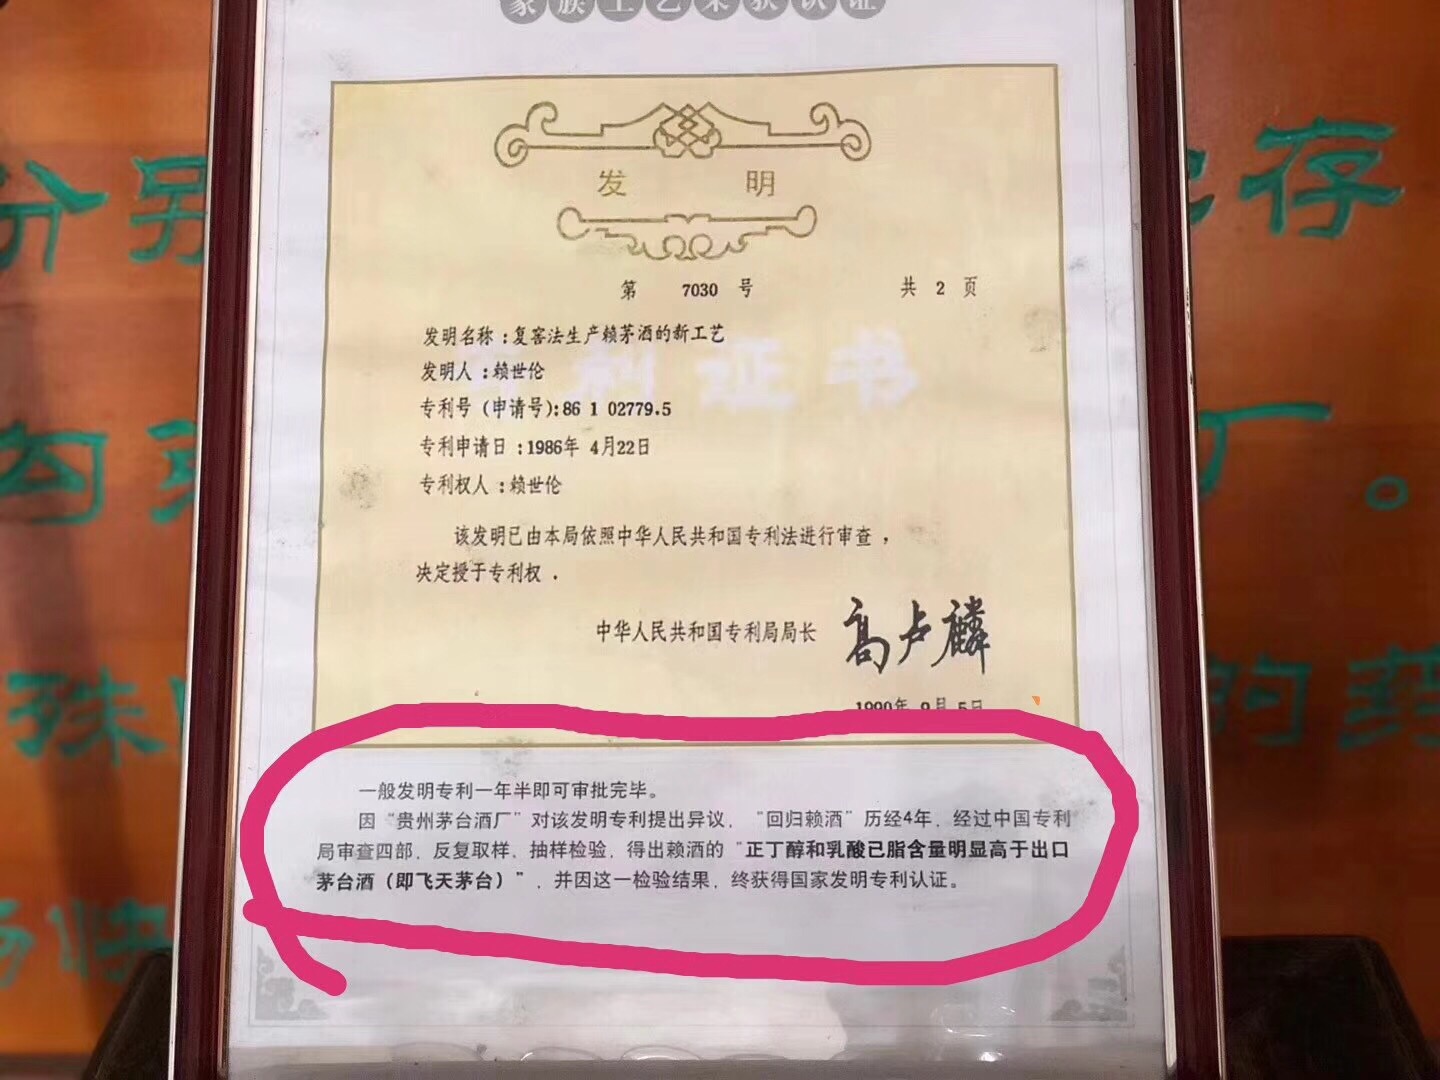 家族工艺荣获认证
发明
第 7030 号 共 2 页
发明名称：复窖法生产赖茅酒的新工艺
发明人：赖世伦
专利号（申请号）：86 1 02779.5
专利申请日：1986年 4月22日
专利权人：赖世伦
利证书
该发明已由本局依照中华人民共和国专利法进行审查，
决定授于专利权．
中华人民共和国专利局局长 高卢麟
1990年 9月 5日
一般发明专利一年半即可审批完毕。
因“贵州茅台酒厂”对该发明专利提出异议，“回归赖酒”历经4年，经过中国专利
局审查四部，反复取样，抽样检验，得出赖酒的“正丁醇和乳酸已脂含量明显高于出口
茅台酒（即飞天茅台）”，并因这一检验结果，终获得国家发明专利认证。
份另
存
勾
厂。
殊
的药